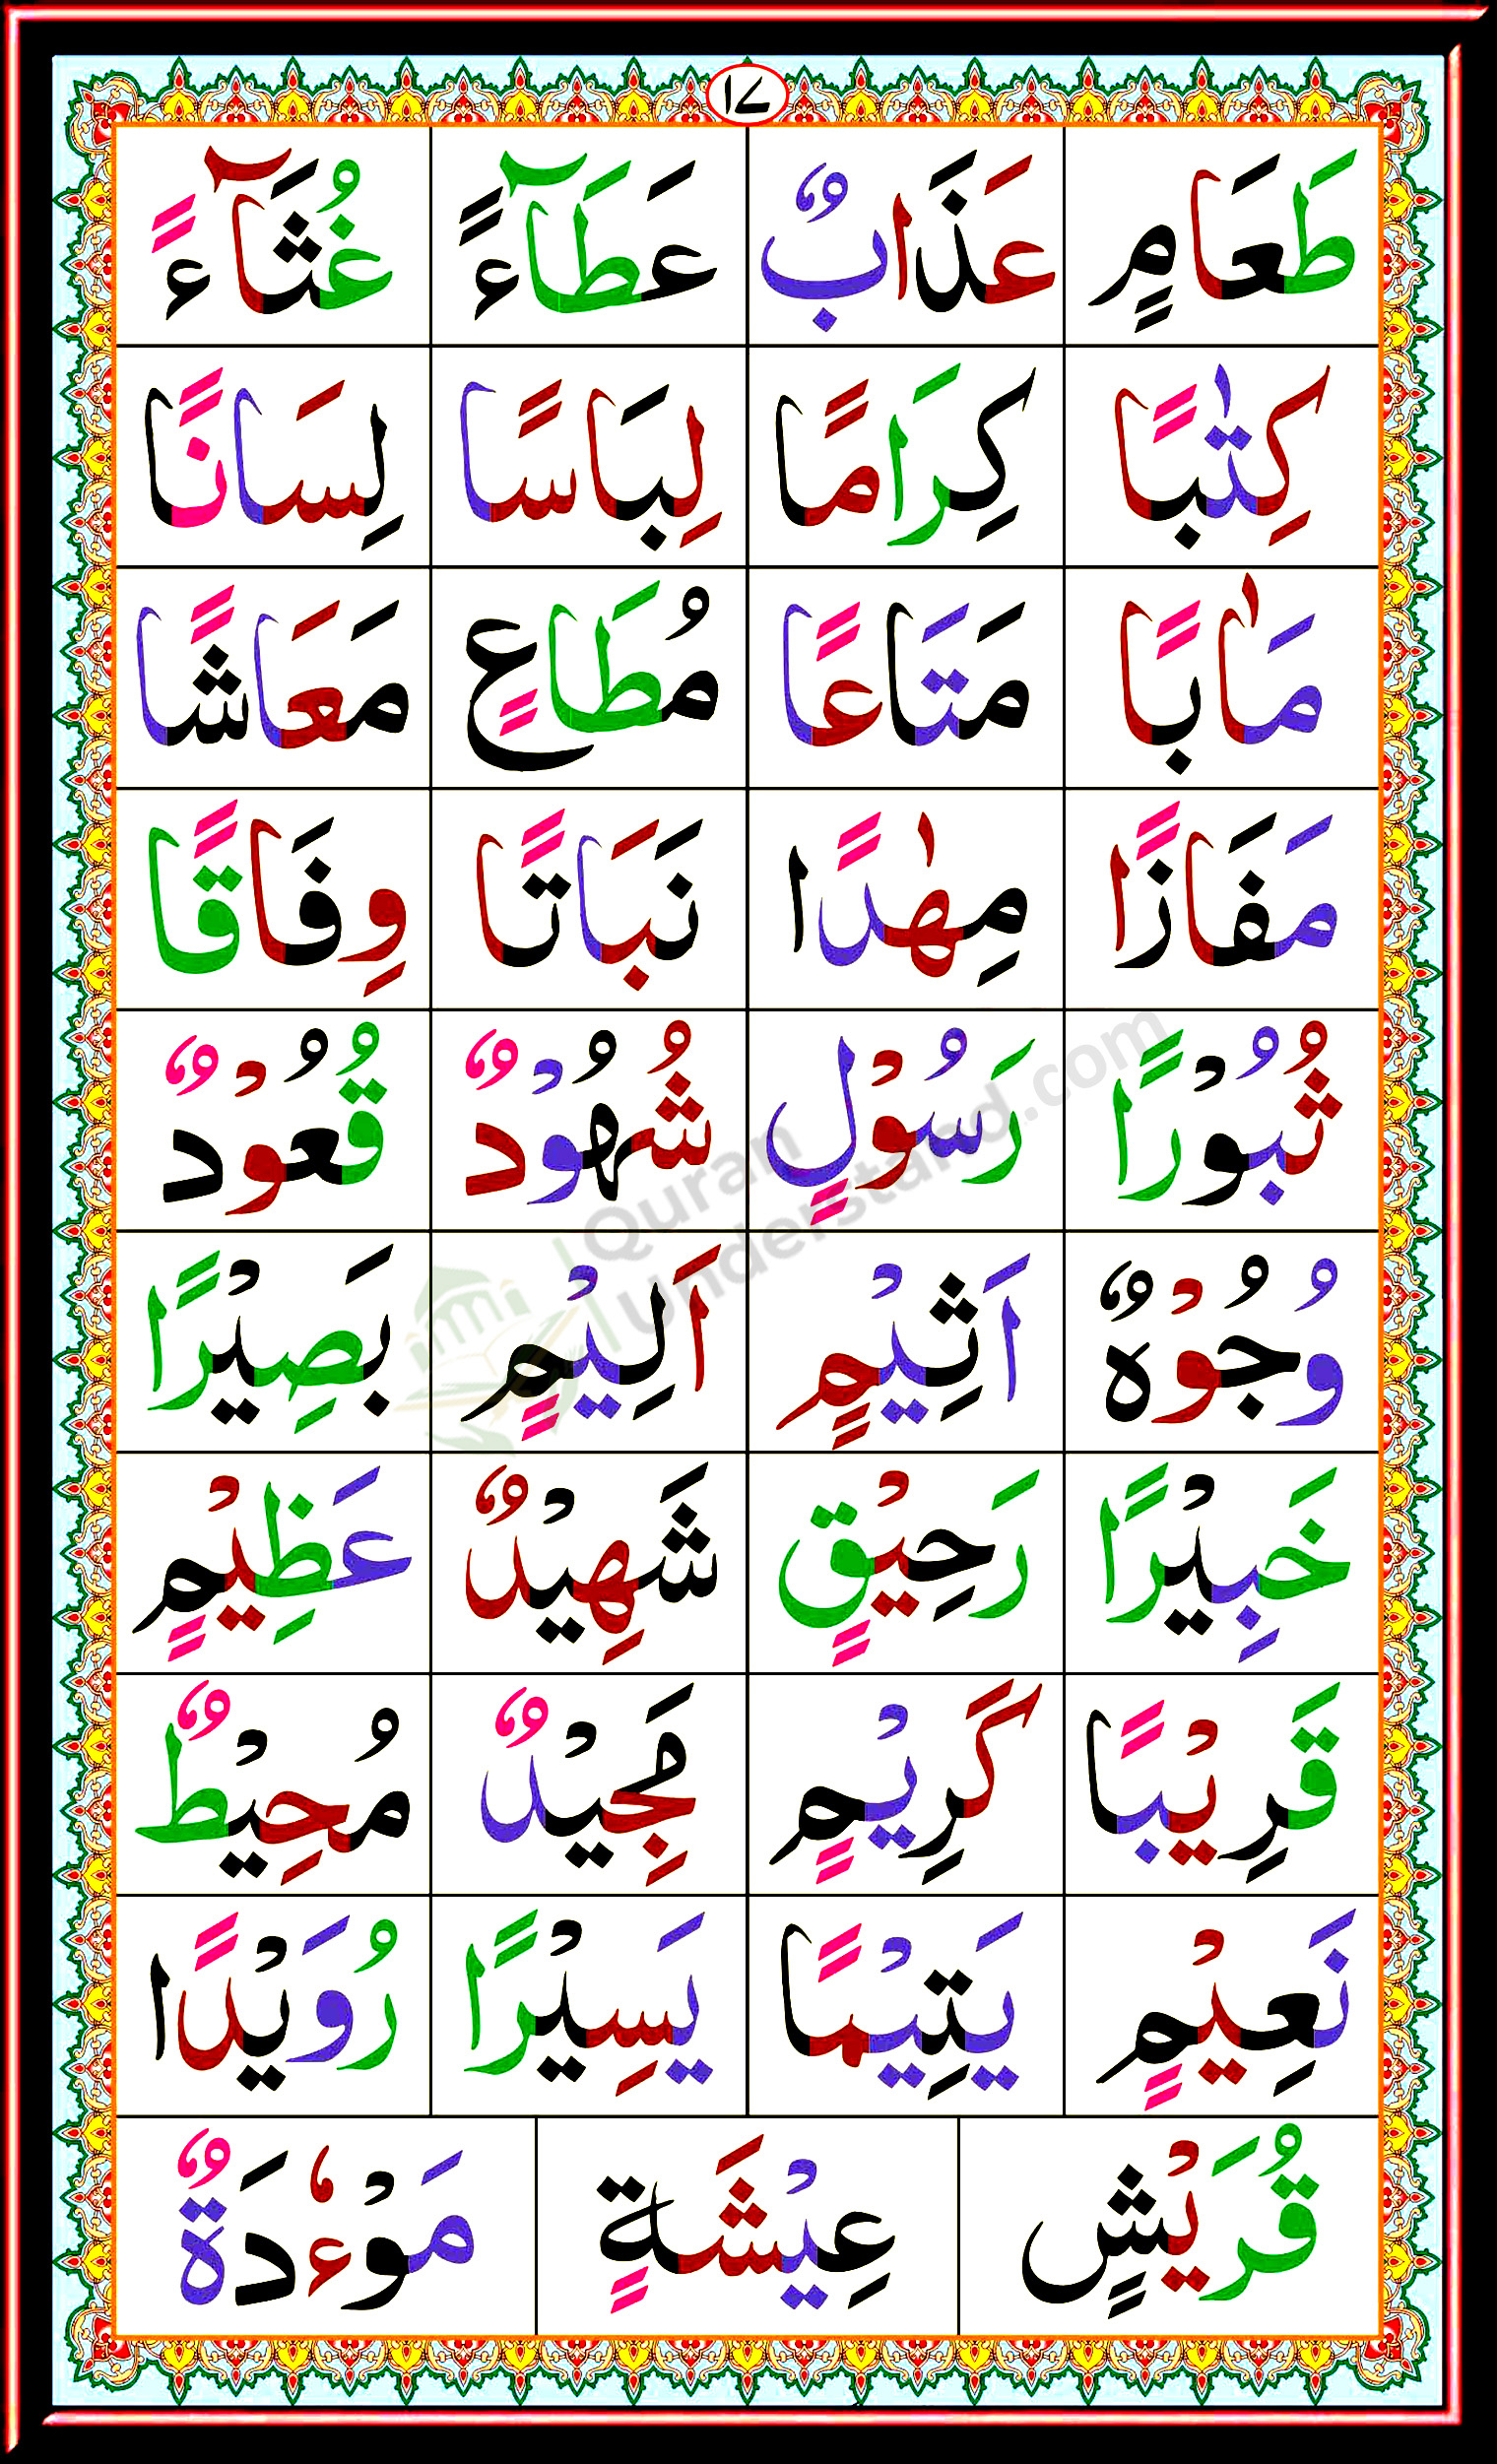 ١٧
طَعَامٍ عَذَابٌ عَطَآءً غُثَآءً
كِتٰبًا كِرَامًا لِبَاسًا لِسَانًا
مَاٰبًا مَتَاعًا مُطَاعٍ مَعَاشًا
مَفَازًا مِهٰدًا نَبَاتًا وِفَاقًا
ثُبُوْرًا رَسُوْلٍ شُهُوْدٌ قُعُوْدٌ
وُجُوْهٌ اَثِيْمٍ اَلِيْمٍ بَصِيْرًا
خَبِيْرًا رَحِيْقٍ شَهِيْدٌ عَظِيْمٍ
قَرِيْبًا كَرِيْمٍ مَجِيْدٌ مُحِيْطٌ
نَعِيْمٍ يَتِيْمًا يَسِيْرًا رُوَيْدًا
قُرَيْشٍ عِيْشَةٍ مَوْءٗدَةٌ
Quran
Understand.com